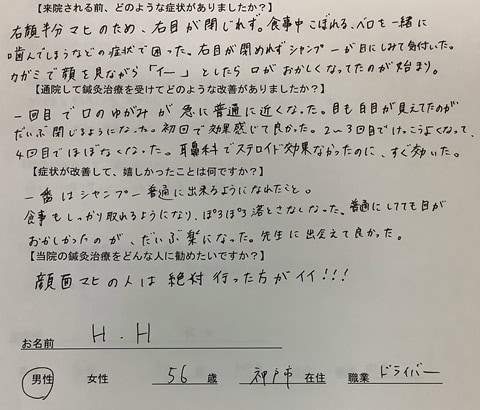 【来院される前、どのような症状がありましたか？】
右顔半分マヒのため、右目が閉じれず。食事中こぼれる、ベロを一緒に
噛んでしまうなどの症状で困った。右目が閉めれずシャンプーが目にしみて気付いた。
カガミで顔を見ながら「イー」としたら口がおかしくなってたのが始まり。
【通院して鍼灸治療を受けてどのような改善がありましたか？】
一回目で口のゆがみが急に普通に近くなった。目も白目が見えてたのが
だいぶ閉じるようになった。初回で効果感じて良かった。2〜3回目でけっこうよくなって、
4回目でほぼなくなった。耳鼻科でステロイド効果なかったのに、すぐ効いた。
【症状が改善して、嬉しかったことは何ですか？】
一番はシャンプー普通に出来るようになれたこと。
食事もしっかり取れるようになり、ぽろぽろ落とさなくなった。普通にしてても目が
おかしかったのが、だいぶ楽になった。先生に出会えて良かった。
【当院の鍼灸治療をどんな人に勧めたいですか？】
顔面マヒの人は絶対行った方がイイ!!!
お名前 H.H
男性 女性 56 歳 神戸市 在住 職業 ドライバー